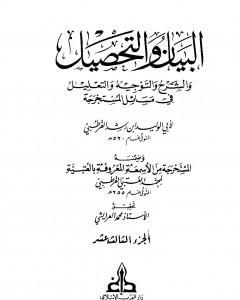 البيان والتحصيل
والشرح والتوجيه والتعليل
في مسائل المستخرجة
لأبي الوليد ابن رشد القرطبي
المتوفى عام ٥٢٠ هـ
وضمنه
المستخرجة من الأسمعة المعروفة بالعتبية
لمحمد العتبي القرطبي
المتوفى عام ٢٥٥ هـ
تحقيق
الأستاذ محمد العرايشي
الجزء الثالث عشر
دار الغرب الإسلامي